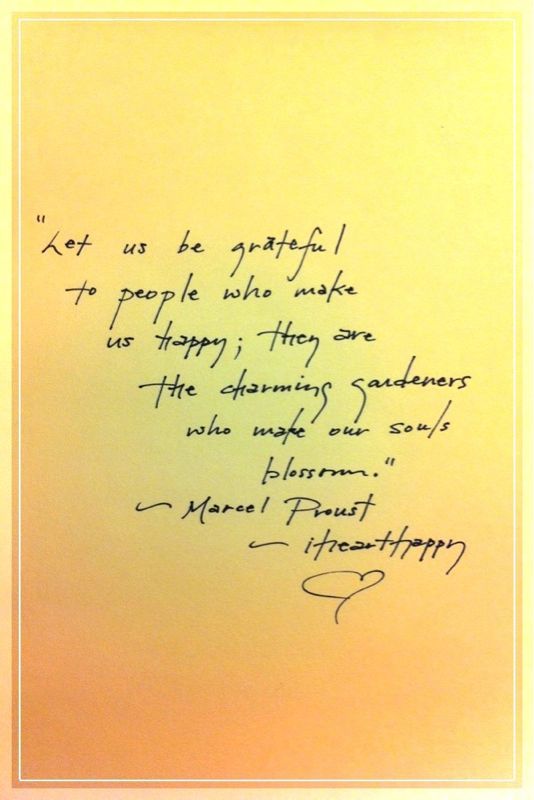 "Let us be grateful
to people who make
us happy; they are
the charming gardeners
who make our souls
blossom."
~ Marcel Proust
~ iHeartHappy